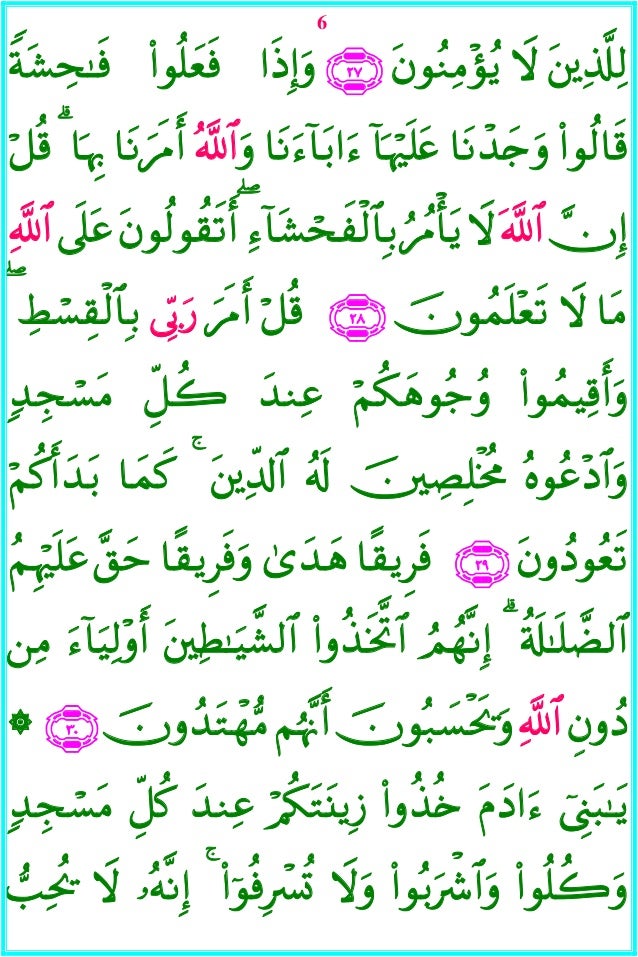 6
لِلَّذِينَ لَا يُؤْمِنُونَ ٢٧ وَإِذَا فَعَلُوا۟ فَـٰحِشَةً
قَالُوا۟ وَجَدْنَا عَلَيْهَآ ءَابَآءَنَا وَٱللَّهُ أَمَرَنَا بِهَا ۗ قُلْ
إِنَّ ٱللَّهَ لَا يَأْمُرُ بِٱلْفَحْشَآءِ ۖ أَتَقُولُونَ عَلَى ٱللَّهِ
مَا لَا تَعْلَمُونَ ٢٨ قُلْ أَمَرَ رَبِّى بِٱلْقِسْطِ ۖ
وَأَقِيمُوا۟ وُجُوهَكُمْ عِندَ كُلِّ مَسْجِدٍ
وَٱدْعُوهُ مُخْلِصِينَ لَهُ ٱلدِّينَ ۚ كَمَا بَدَأَكُمْ
تَعُودُونَ ٢٩ فَرِيقًا هَدَىٰ وَفَرِيقًا حَقَّ عَلَيْهِمُ
ٱلضَّلَـٰلَةُ ۗ إِنَّهُمُ ٱتَّخَذُوا۟ ٱلشَّيَـٰطِينَ أَوْلِيَآءَ مِن
دُونِ ٱللَّهِ وَيَحْسَبُونَ أَنَّهُم مُّهْتَدُونَ ٣٠ ۞
يَـٰبَنِىٓ ءَادَمَ خُذُوا۟ زِينَتَكُمْ عِندَ كُلِّ مَسْجِدٍ
وَكُلُوا۟ وَٱشْرَبُوا۟ وَلَا تُسْرِفُوٓا۟ ۚ إِنَّهُۥ لَا يُحِبُّ